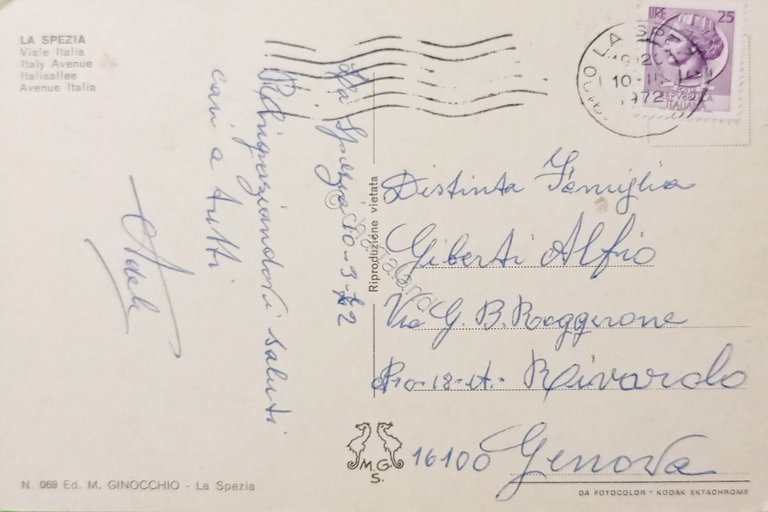 LA SPEZIA
Viale Italia
Italy Avenue
Italiaallee
Avenue Italia
La Spezia 10-9-72
Ringraziandovi saluti
cari a tutti
Adele
Riproduzione vietata
LIRE 25
LA SPEZIA
10
1972
ITALIANA
Distinta Famiglia
Giberti Alfio
Via G. B. Roggerone
18-A. Rivarolo
16100 Genova
M.G.
S.
N. 069 Ed. M. GINOCCHIO - La Spezia
DA FOTOCOLOR - KODAK EKTACHROME